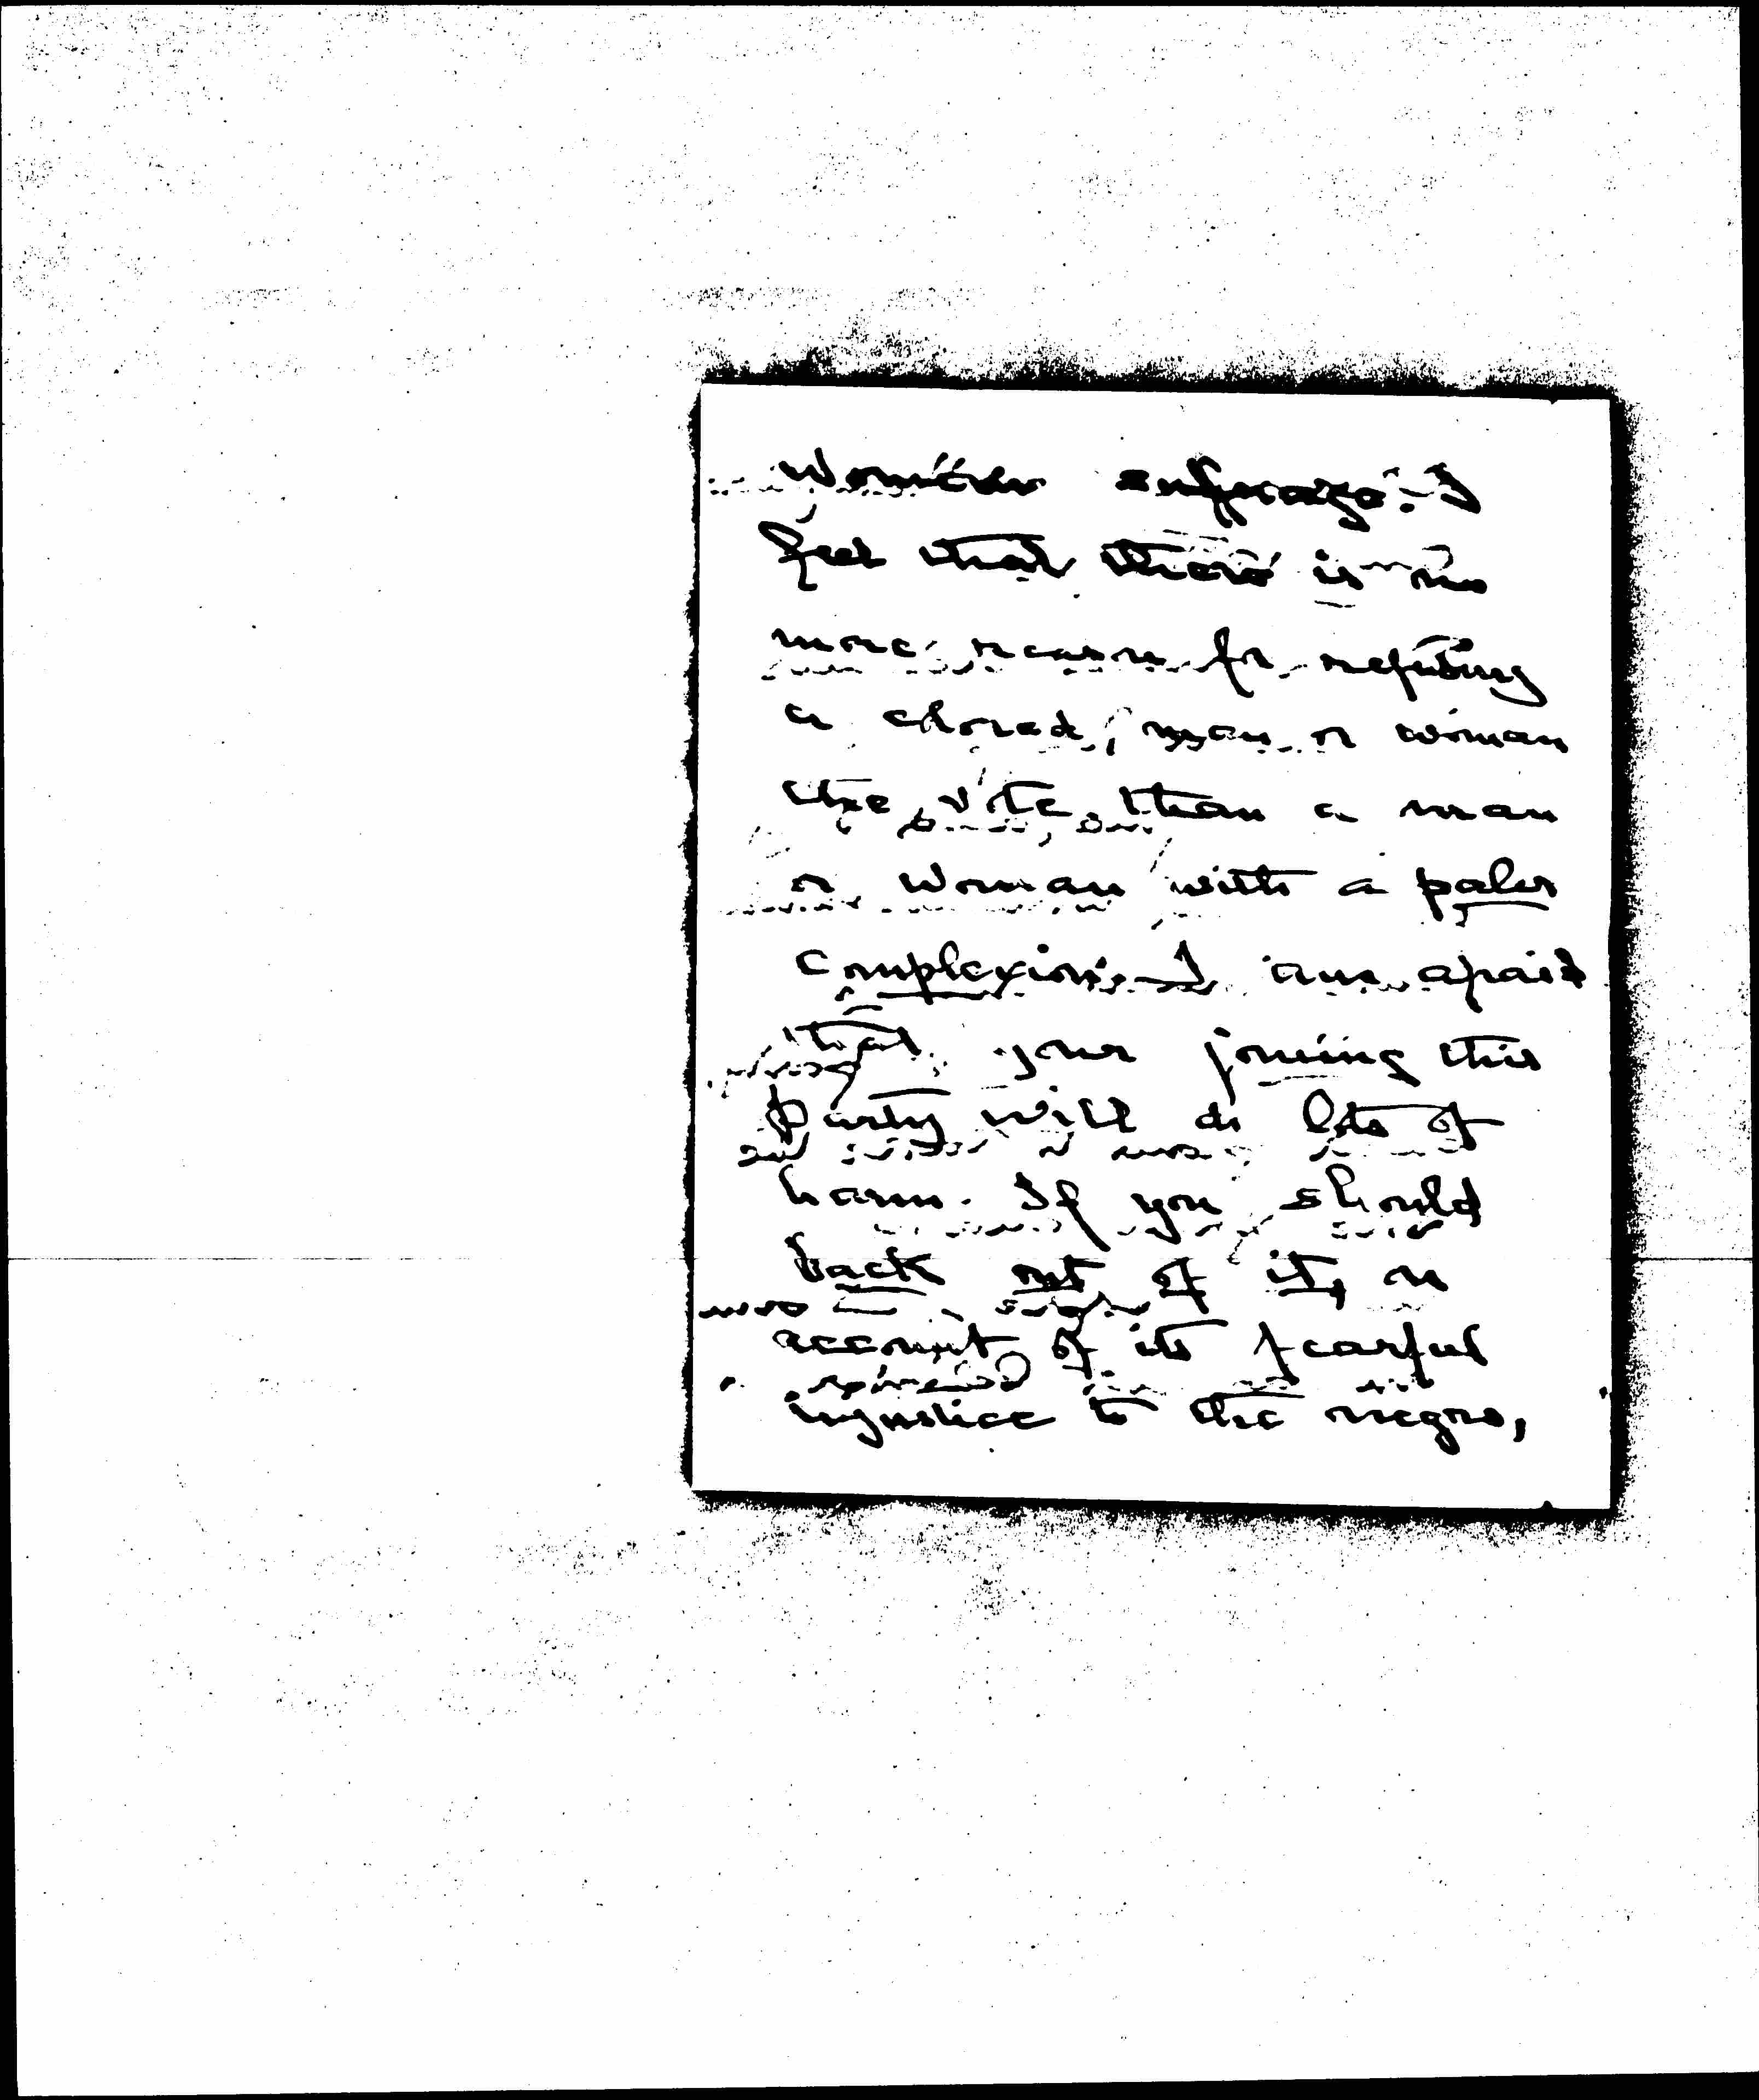 Women's suffrage. I
feel that there is no
more reason for refusing
a colored man or woman
the vote than a man
or woman with a paler
complexion. I am afraid
that your joining this
party will do lots of
harm. If you should
back out of it, on
account of its fearful
injustice to the negro,